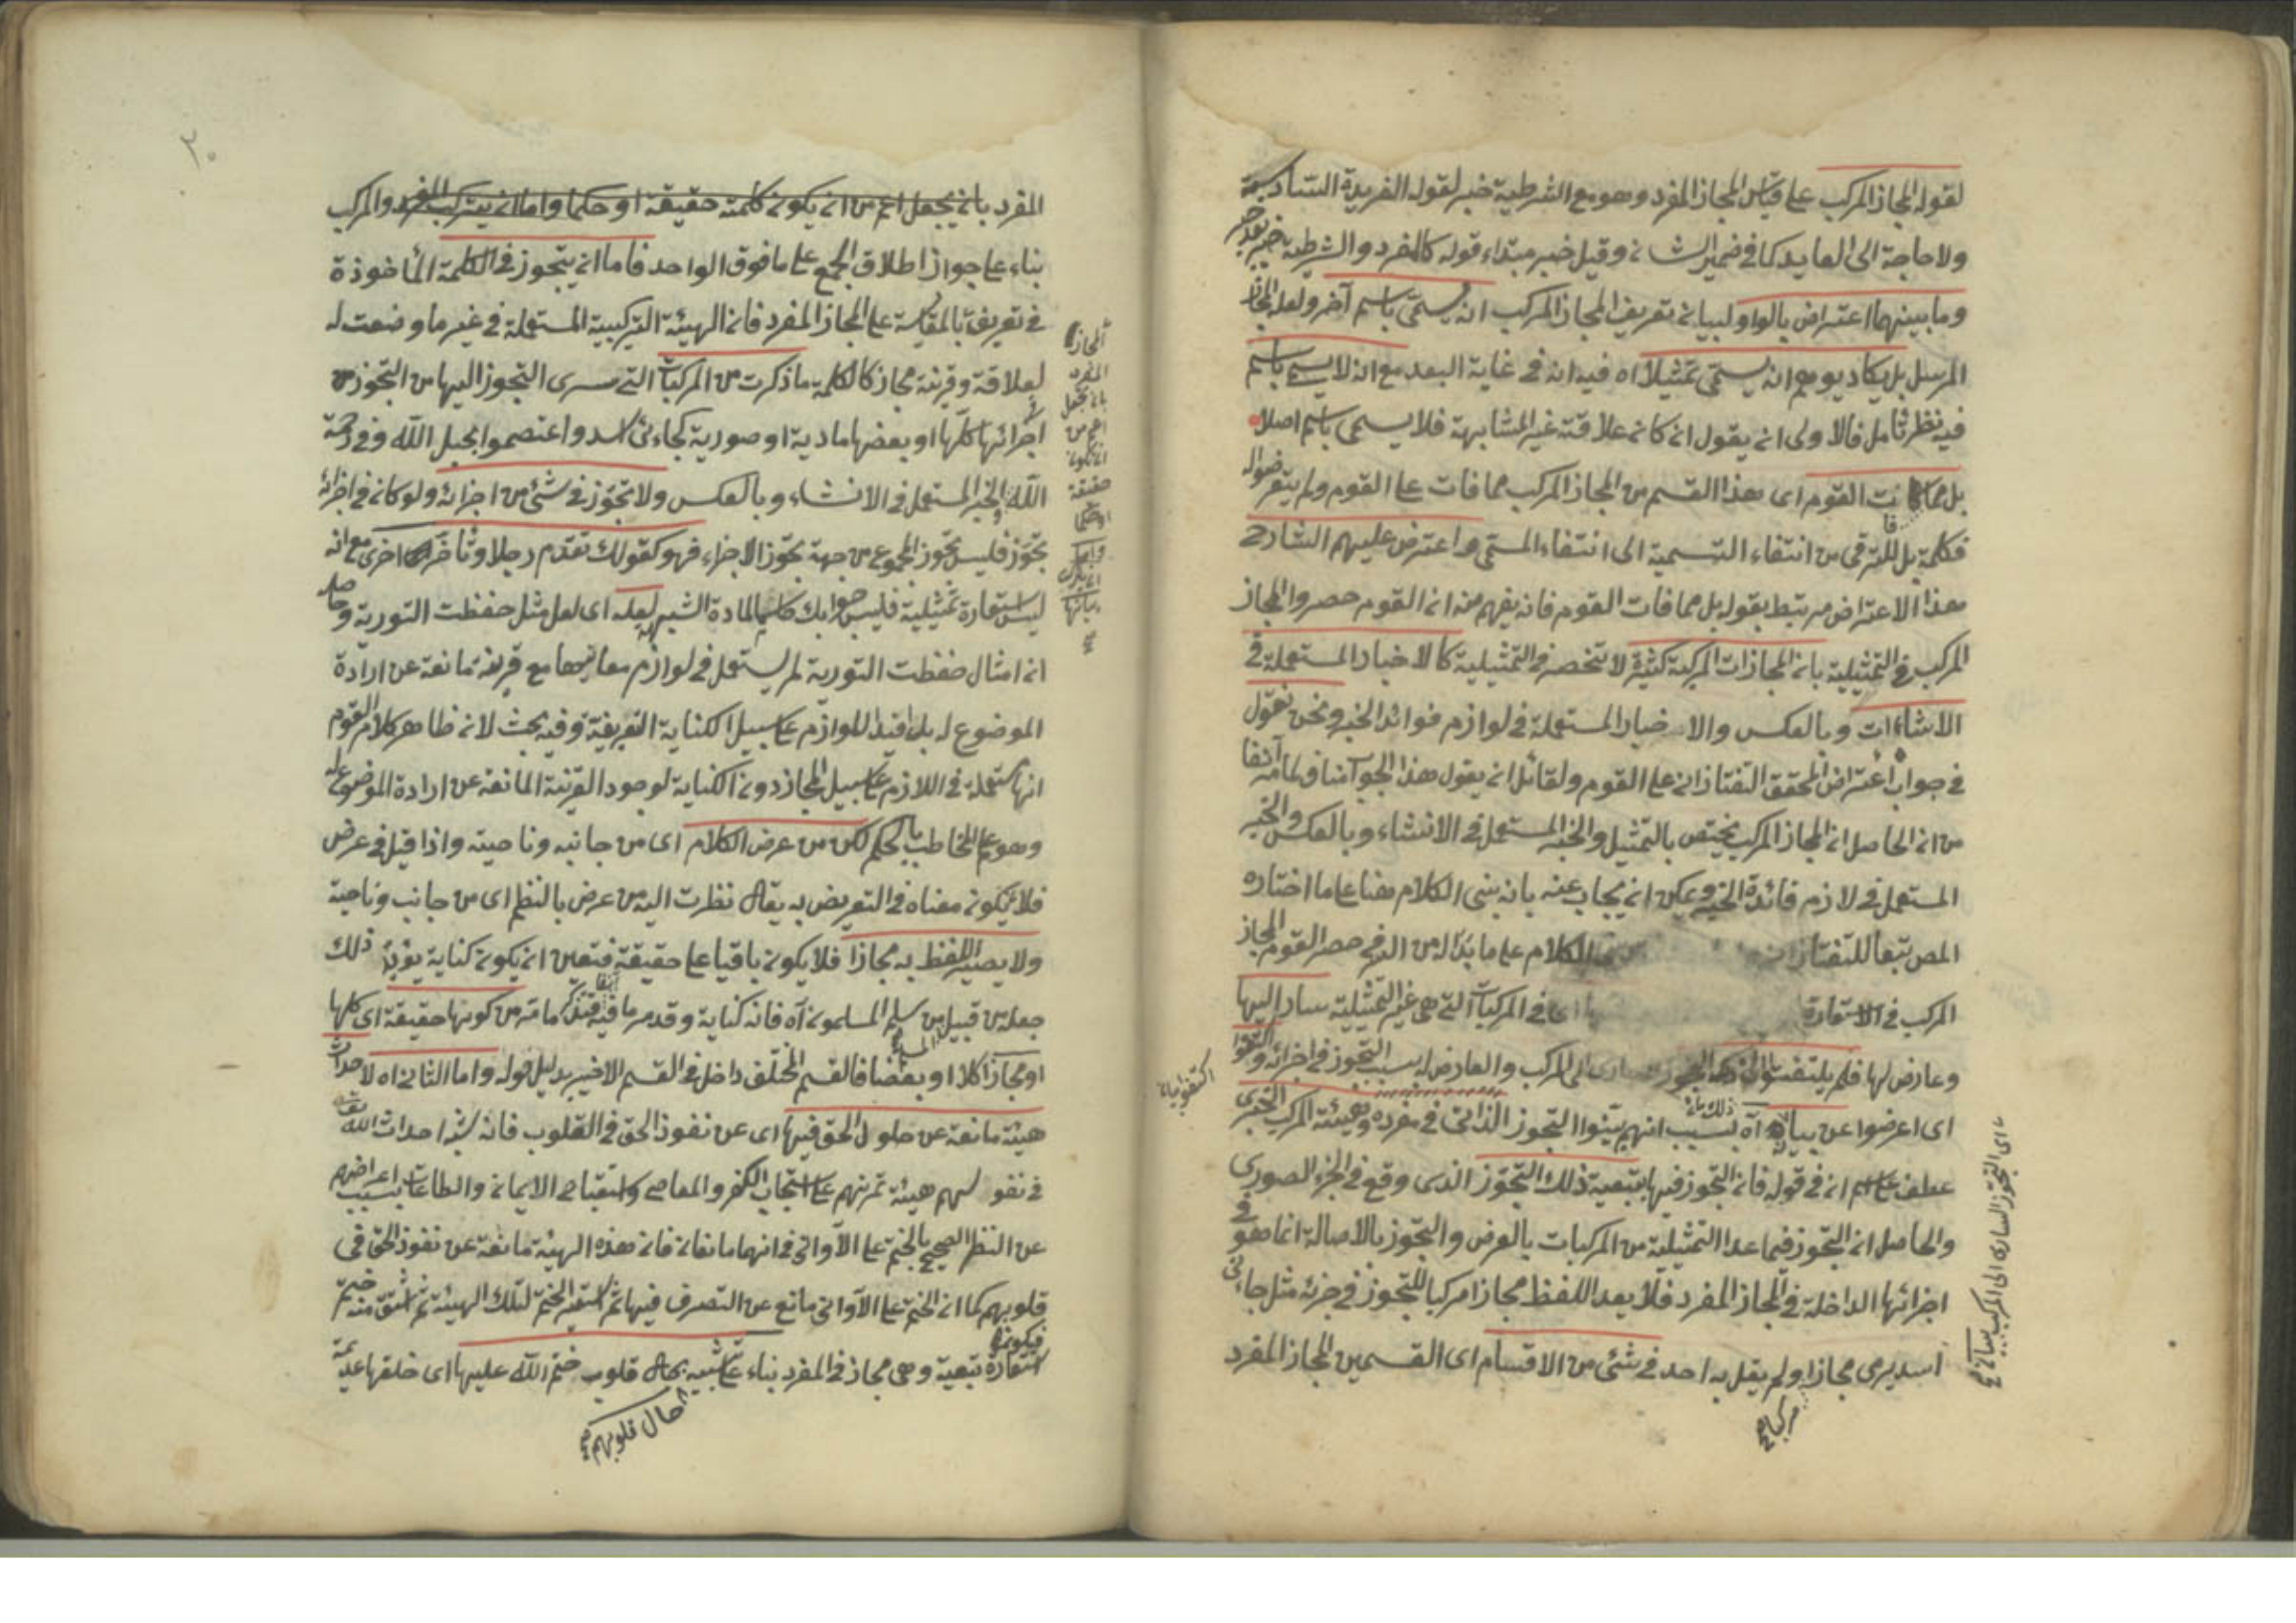 لقوله المجاز المركب على قياس المجاز المفرد وهو مع الشرطية خبر لقوله الفريدة السادسة
ولا حاجة الى العايد كما في ضمير الشان وقيل خبر مبتداء قوله كالمفرد والشرطية خبر بعد خبر
وما بينهما اعتراض بالواو لبيان تعريف المجاز المركب انه يسمى باسم آخر ولعل المجاز
المرسل بل يكاد يوهم انه يسمى تمثيلا اه فيه انه في غاية البعد مع انه لا يسمى باسم
فيه نظر تامل فالاولى ان يقول ان كان علاقته غير المشابهة فلا يسمى باسم اصلا
بل مما فات القوم اى هذا القسم من المجاز المركب مما فات على القوم ولم يتعرضوا له
فكلمة بل للترقي من انتفاء التسمية الى انتفاء المسمى واعترض عليهم الشارح
هذا الاعتراض مرتبط بقوله بل مما فات القوم فانه يفهم منه ان القوم حصروا المجاز
المركب في التمثيلية بان المجازات المركبة كثيرة لا تنحصر في التمثيلية كالاخبار المستعملة في
الانشاءات وبالعكس والاخبار المستعملة في لوازم فوائد الخبر ونحن نقول
في جواب اعتراض المحقق التفتازاني على القوم ولقائل ان يقول هذا الجواب مناف لما مر آنفا
من ان الحاصل ان المجاز المركب يختص بالتمثيل والخبر المستعمل في الانشاء وبالعكس والخبر
المستعمل في لازم فائدة الخبر ويمكن ان يجاب عنه بانه بنى الكلام هنا على ما اختاره
المص تبعا للتفتازاني الكلام على ما بدا له من الد في حصر القوم المجاز
المركب في الاستعارة اى في المركبات التي هي غير التمثيلية سار اليها
وعارض لها فلم يلتفتوا الى المركب والعارض له بسبب التجوز في اجزائه
اكتفوا بيان
اى اعرضوا عن بيانه آه بسبب انهم بينوا التجوز الذاتى في مفرده وهيئة المركب الخبرى
ذلك بانه
عطف على اسم ان في قوله فان التجوز فيها بتبعية ذلك التجوز الذى وقع في الجزء الصورى
والحاصل ان التجوز فيما عدا التمثيلية من المركبات بالعرض والتجوز بالاصالة انما هو في
اجزائها الداخلة في المجاز المفرد فلا يعد اللفظ مجازا مركبا للتجوز في جزئه مثل جاءنى
اسد يرمى مجازا ولم يقل به احد في شئ من الاقسام اى القسمين المجاز المفرد
مركبا صح
اى التجوز السارى الى المركب صح
المفرد بان يجعل اعم من ان يكون كلمة حقيقة او حكما واما ان يترك المفرد والمركب
بناء على جواز اطلاق الجمع على ما فوق الواحد فاما ان يتجوز في الكلمة المأخوذة
في تعريفه بالمقايسة على المجاز المفرد فان الهيئة التركيبية المستعملة في غير ما وضعت له
لعلاقة وقرينة مجاز كالكلمة ما ذكرت من المركبات التي سرى التجوز اليها من التجوز في
اجزائها كلها او بعضها مادية او صورية كجاءنى اسد واعتصموا بحبل الله وفي رحمة
الله والخبر المستعمل في الانشاء وبالعكس ولا تجوز في شئ من اجزائه ولو كان في اجزائه
تجوز فليس تجوز المجموع من جهة تجوز الاجزاء فهو كقولك تقدم رجلا وتأخر اخرى مع انه
ليس استعارة تمثيلية فليس جوابك حاسما لمادة الشبهة لعله اى لعل مثل حفظت التورية وحاصله
ان امثال حفظت التورية لم يستعمل في لوازم معانيها مع قرينة مانعة عن ارادة
الموضوع له بل افيد اللوازم على سبيل الكناية التعريضية وفيه بحث لان ظاهر كلام القوم
انها مستعملة في اللازم على سبيل المجاز دون الكناية لوجود القرينة المانعة عن ارادة الموضوع له
وهو علم المخاطب بالحكم لكن من عرض الكلام اى من جانبه وناحيته واذا قيل في عرض
فلان يكون معناه في التعريض به يقال نظرت اليه من عرض بالنظم اى من جانب وناحية
ولا يصير اللفظ به مجازا فلا يكون باقيا على حقيقة فتعين ان يكون كناية يؤيد ذلك
جعله من قبيل من سلم المسلمون آه فانه كناية وقد مر ما فيه آنفا فتذكر ما مر من كونها حقيقة اى كلها
او مجازا كلا او بعضا فالقسم المختلف داخل في القسم الاخير بدليل قوله واما الثانى اه لاحداث
هيئة مانعة عن حلول الحق فيها اى عن نفوذ الحق في القلوب فانه شبه احداث الله
في نفوسهم هيئة تمرنهم على استحباب الكفر والمعاصى واستقباح الايمان والطاعات بسبب اعراضهم
عن النظر الصحيح بالختم على الآواني في انهما مانعان فان هذه الهيئة مانعة عن نفوذ الحق في
قلوبهم كما ان الختم على الآوانى مانع عن التصرف فيها ثم استعير الختم لتلك الهيئة ثم اشتق منه ختم
فيكون استعارة تبعية وهي مجاز في المفرد بناء على تشبيه بحال قلوب ختم الله عليها اى خلقها عديمة
حال قلوبهم صح
المجاز
المفرد
بان يجعل
اعم من
ان يكون
حقيقة
او حكما
واما
ان يترك
بيانها
صح
٢٠